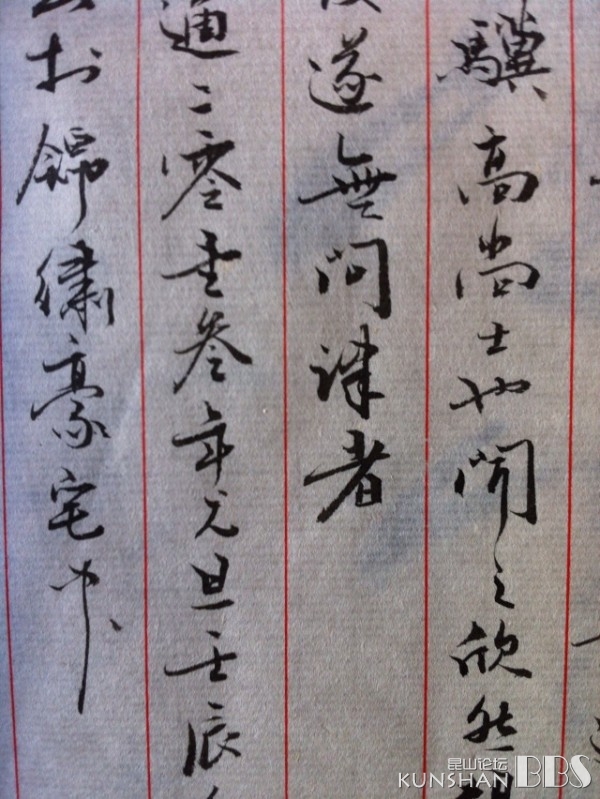 驥高尚士也聞之欣然
遂無問津者
通二零壹叁年元旦壬辰
於錦繡豪宅中
昆山论坛
KUNSHAN BBS